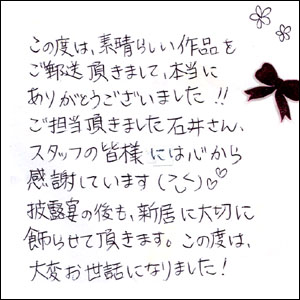 この度は、素晴らしい作品を
ご郵送頂きまして、本当に
ありがとうございました!!
ご担当頂きました石井さん、
スタッフの皆様には心から
感謝しています
披露宴の後も、新居に大切に
飾らせて頂きます。この度は、
大変お世話になりました!